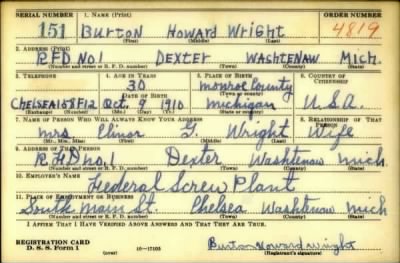 SERIAL NUMBER 1. NAME (Print) ORDER NUMBER
151 Burton Howard Wright 4819
(First) (Middle) (Last)
2. ADDRESS (Print)
RFD No. 1 DEXTER WASHTENAW Mich.
(Number and street or R. F. D. number) (Town) (County) (State)
3. TELEPHONE 4. AGE IN YEARS 5. PLACE OF BIRTH 6. COUNTRY OF CITIZENSHIP
30 Monroe County
DATE OF BIRTH (Town or county)
CHELSEA 158F12 Oct. 9 1910 Michigan U.S.A.
(Exchange) (Number) (Mo.) (Day) (Yr.) (State or country)
7. NAME OF PERSON WHO WILL ALWAYS KNOW YOUR ADDRESS 8. RELATIONSHIP OF THAT PERSON
Mrs. Elinor G. Wright Wife
(Mr., Mrs., Miss) (First) (Middle) (Last)
9. ADDRESS OF THAT PERSON
R.F.D no. 1 Dexter Washtenaw Mich
(Number and street or R. F. D. number) (Town) (County) (State)
10. EMPLOYER'S NAME
Federal Screw Plant
11. PLACE OF EMPLOYMENT OR BUSINESS
South Main St. Chelsea Washtenaw Mich
(Number and street or R. F. D. number) (Town) (County) (State)
I AFFIRM THAT I HAVE VERIFIED ABOVE ANSWERS AND THAT THEY ARE TRUE.
REGISTRATION CARD
D. S. S. Form 1 (over) 16—17105 Burton Howard Wright
(Registrant's signature)